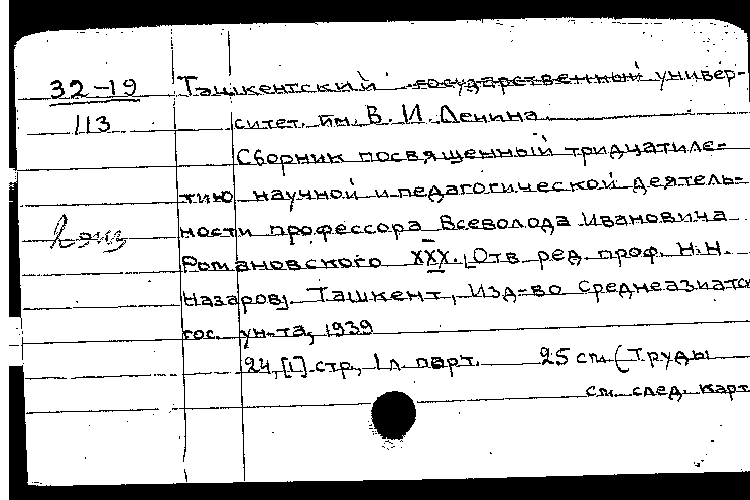 32-19 Ташкентский государственный универ-
113 ситет. им. В. И. Ленина.
Сборник посвященный тридцатиле-
тию научной и педагогической деятель-
ности профессора Всеволода Ивановича
Романовского XXX. [Отв. ред. проф. Н. Н.
Назаров]. Ташкент, Изд-во Среднеазиатск
гос. ун-та, 1939
24, [1] стр., 1 л. парт. 25 см (Труды
см. след. карт